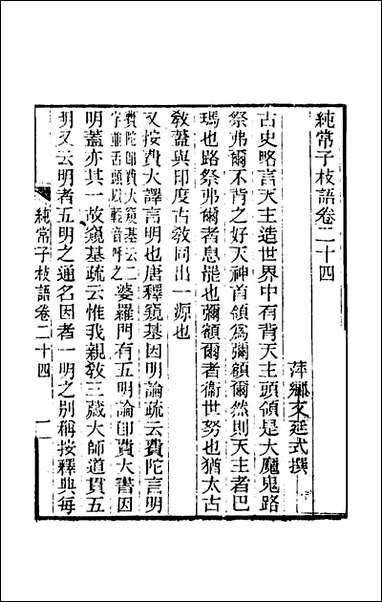 純常子枝語卷二十四
萍鄉文廷式撰
古史略言天主造世界中有背天主頭領是大魔鬼路
祭弗爾不背之好天神首領為彌額爾然則天主者巴
瑪也路祭弗爾者息罷也彌額爾者衞世努也猶太古
敎蓋與印度古敎同出一源也
又按費大譯言明也唐釋窺基因明論疏云費陀言明
費陀卽費大窺基云二
字並舌頭以輕音呼之
婆羅門有五明論卽費大書因
明蓋亦其一故窺基疏云惟我親敎三藏大師道貫五
明又云明者五明之通名因者一明之別稱按釋典每
純常子枝語卷二十四
一